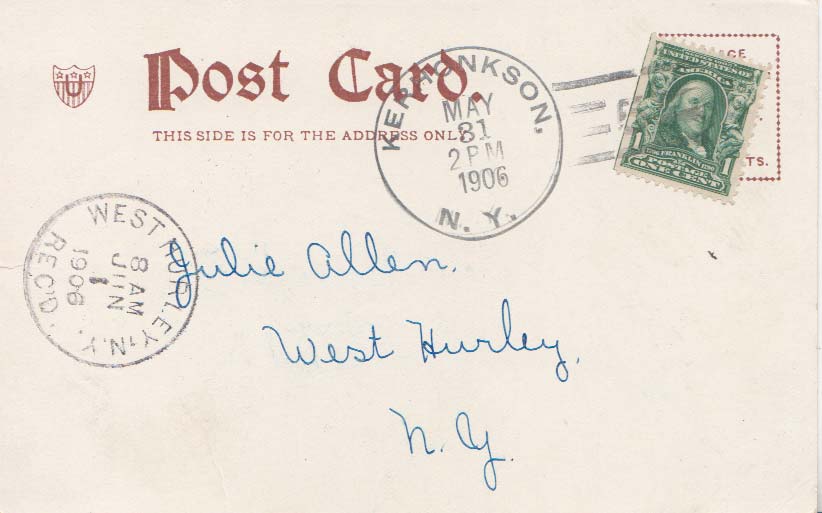 U
Post Card.
THIS SIDE IS FOR THE ADDRESS ONLY.
KERHONKSON,
MAY
31
2 PM
1906
N. Y.
UNITED STATES OF
AMERICA
FRANKLIN
POSTAGE
1 ONE CENT 1
WEST HURLEY, N.Y.
8 AM
JUN
1
1906
REC'D.
Julie Allen.
West Hurley,
N. Y.